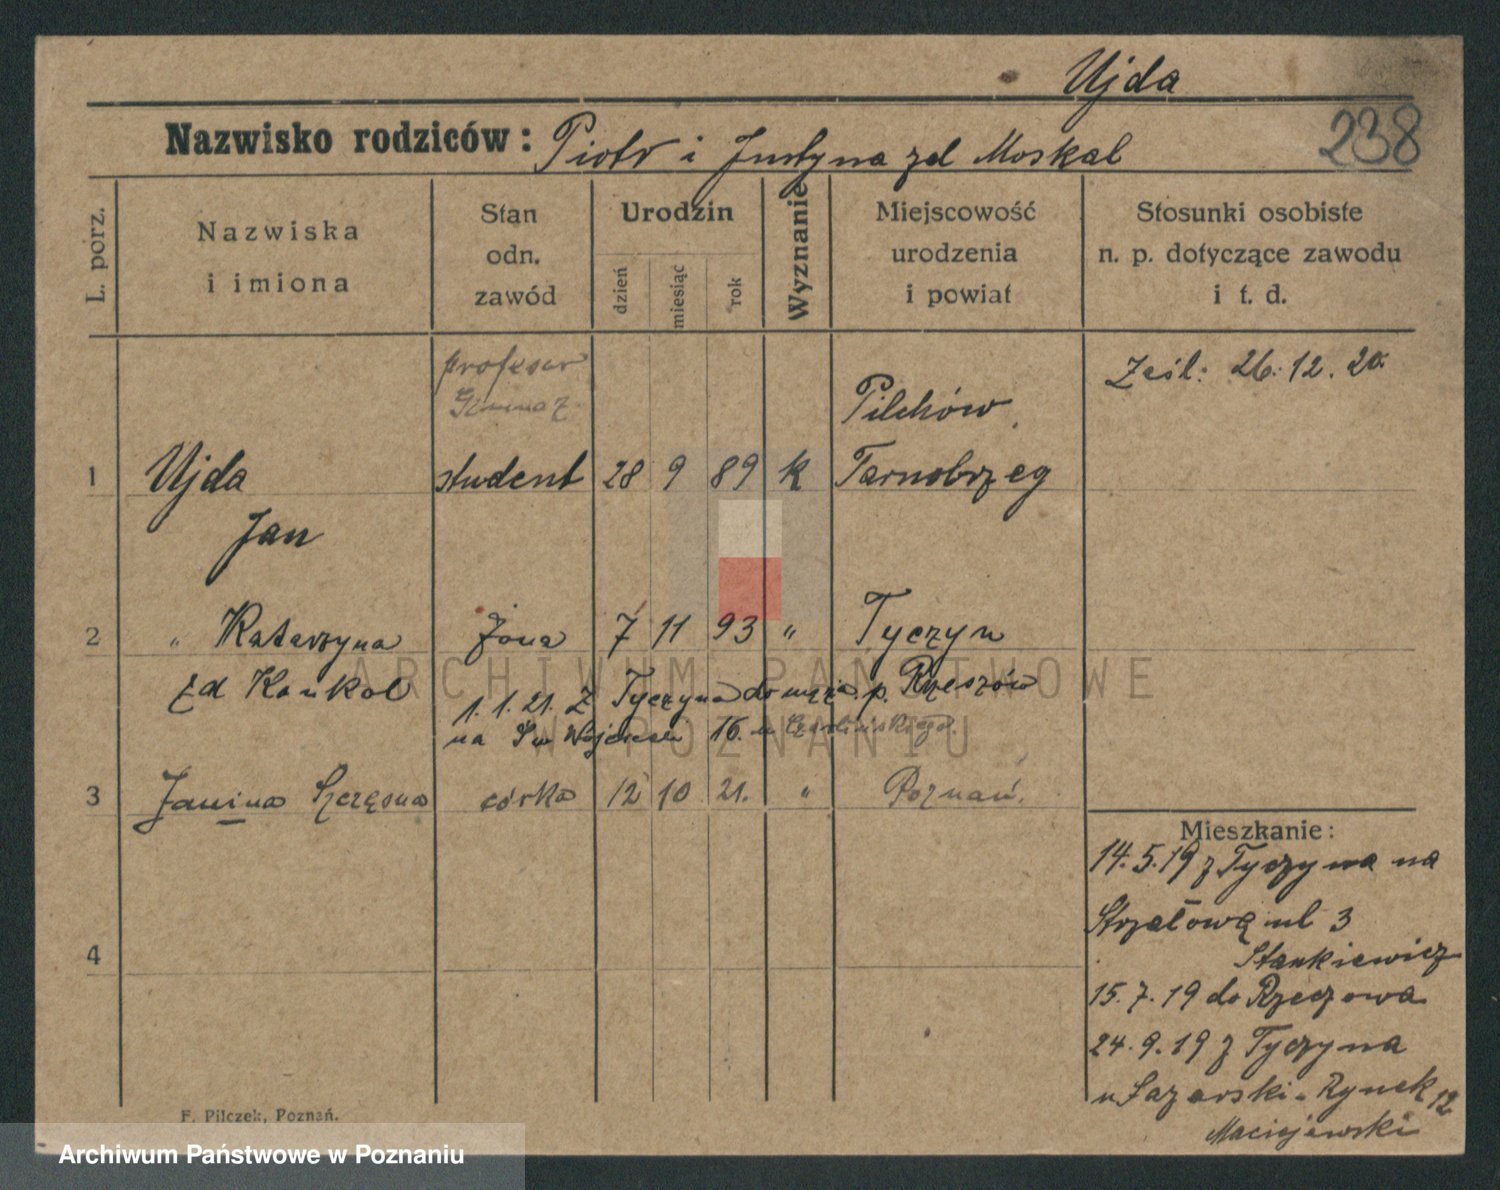 Ujda
238
Nazwisko rodziców: Piotr i Justyna zd Moskal
L. porz.
Nazwiska i imiona
Stan odn. zawód
Urodzin
dzień
miesiąc
rok
Wyznanie
Miejscowość urodzenia i powiat
Stosunki osobiste n. p. dotyczące zawodu i t. d.
profesor
Ześl: 26.12.20.
Pilchów,
1 Ujda student 28 9 89 k Tarnobrzeg
Jan
2 " Katarzyna żona 7 11 93 " Tyczyn
żd Konkol
1.1.21. Z Tyczyna do męża p. Rzeszów
na Św Wojciech 16.
3 Janina Szczęsna córka 12 10 21. " Poznań.
Mieszkanie:
14.5.19 z Tyczyna na
Strzałową ul 3
Stankiewicz
4
15.7.19 do Rzeszowa
24.9.19 z Tyczyna
Łazarski-Rynek 12
Maciejewski
F. Pilczek, Poznań.
ARCHIWUM PAŃSTWOWE
W POZNANIU
Archiwum Państwowe w Poznaniu